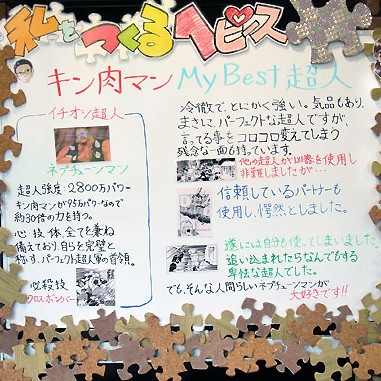 私をつくる1ピース
キン肉マン My Best 超人
イチオシ超人
ネプチューンマン
超人強度 2800万パワー
キン肉マンが95万パワーなので
約30倍の力を持つ。
心・技・体 全てを兼ね
備えており、自らを完璧と
称す、パーフェクト超人軍の首領。
必殺技
クロスボンバー
冷徹で、とにかく強い。気品もあり、
まさに、パーフェクトな超人ですが、
言ってる事をコロコロ変えてしまう
残念な一面も持っています。
他の超人が凶器を使用し
非難しましたが…
信頼しているパートナーも
使用し、愕然としました。
遂には自分も使ってしまいました。
追い込まれたらなんでもする
卑怯な超人でした。
でも、そんな人間らしいネプチューンマンが
大好きです!!